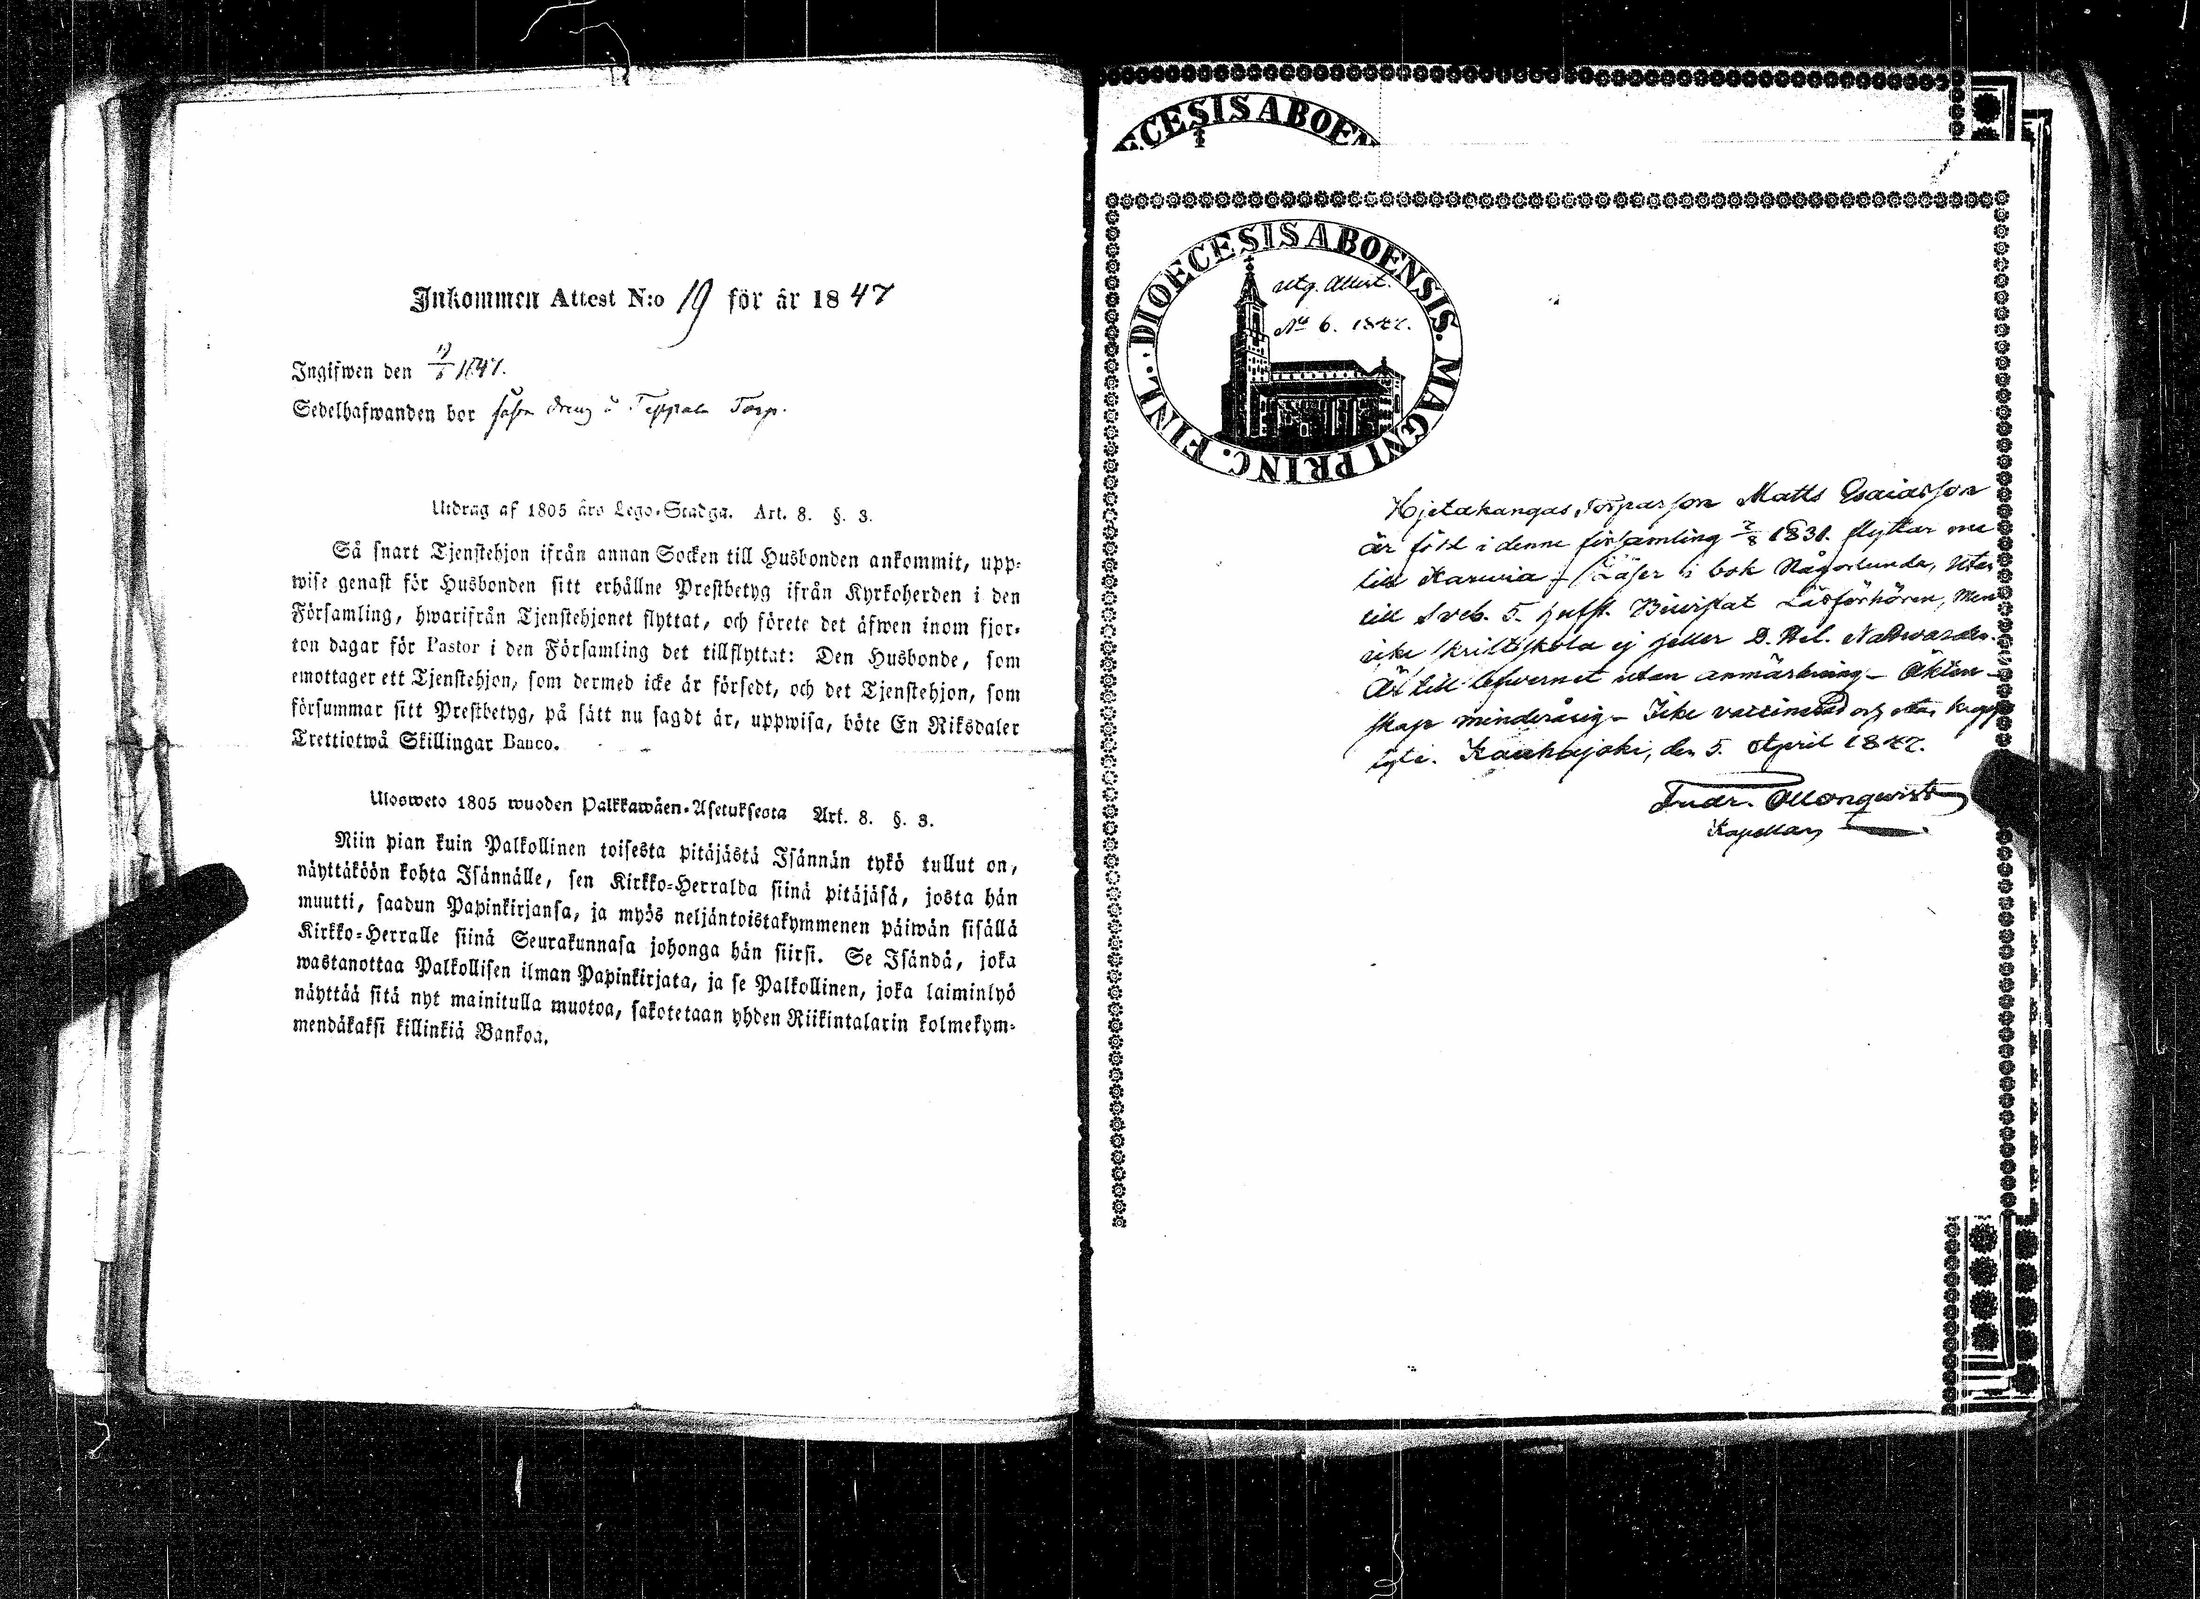 Inkommen Attest N:o 19 för år 1847
Ingifwen den 1847.
Sedelhafwanden bor såsom dreng å Teppala Torp.
Utdrag af 1805 års Lego-Stadga. Art. 8. §. 3.
Så snart Tjenstehjon ifrån annan Socken till Husbonden ankommit, upp-
wise genast för Husbonden sitt erhållne Prestbetyg ifrån Kyrkoherden i den
Församling, hwarifrån Tjenstehjonet flyttat, och förete det äfwen inom fjor-
ton dagar för Pastor i den Församling det tillflyttat: Den Husbonde, som
emottager ett Tjenstehjon, som dermed icke är försedt, och det Tjenstehjon, som
försummar sitt Prestbetyg, på sätt nu sagdt är, uppwisa, böte En Riksdaler
Trettiotwå Skillingar Banco.
Ulosweto 1805 wuoden Palkkawäen-Asetuksesta Art. 8. §. 3.
Niin pian kuin Palkollinen toisesta pitäjästä Isännän tykö tullut on,
näyttäköön kohta Isännälle, sen Kirkko-Herralda siinä pitäjäsä, josta hän
muutti, saadun Papinkirjansa, ja myös neljäntoistakymmenen päiwän sisällä
Kirkko-Herralle siinä Seurakunnasa johonga hän siirsi. Se Isändä, joka
wastanottaa Palkollisen ilman Papinkirjata, ja se Palkollinen, joka laiminlyö
näyttää sitä nyt mainitulla muotoa, sakotetaan yhden Riikintalarin kolmekym-
mendäkaksi killinkiä Bankoa.
DIOECESIS ABOEN
DIOECESIS ABOENSIS. MAGNI PRINC. FINL.
utg. Attest.
No 6. 1847.
Hjetakangas Torparson Matts Esaiasson
är född i denne församling 2/8 1831. flyttar nu
till Karvia. Läser i bok Någorlunda, utan
till Sveb. 5. hufst. Biwistat Läsförhören, men
icke skriftskola ej heller D. Hel. Nattwarden.
Är till lefwernet utan anmärkning - Äkten-
skap minderårig - Icke vaccinerad och utan kropps
lyte. Kauhajoki, den 5. April 1847.
Kapellan